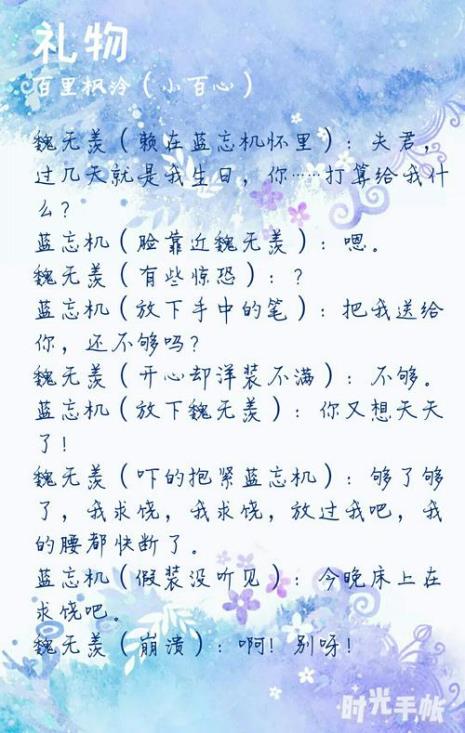 礼物
百里枫泠（小百心）
魏无羡（赖在蓝忘机怀里）：夫君，
过几天就是我生日，你……打算给我什
么？
蓝忘机（脸靠近魏无羡）：嗯。
魏无羡（有些惊恐）：？
蓝忘机（放下手中的笔）：把我送给
你，还不够吗？
魏无羡（开心却洋装不满）：不够。
蓝忘机（放下魏无羡）：你又想天天
了！
魏无羡（吓的抱紧蓝忘机）：够了够
了，我求饶，我求饶，放过我吧，我
的腰都快断了。
蓝忘机（假装没听见）：今晚床上在
求饶吧。
魏无羡（崩溃）：啊！别呀！
时光手帐